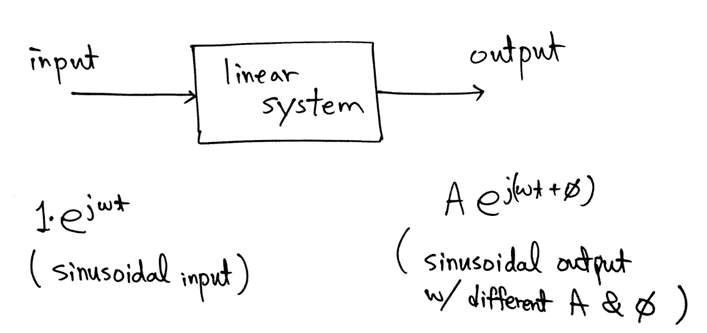 input
linear
system
output
1·e^{jωt}
(sinusoidal input)
A e^{j(ωt+ø)}
(sinusoidal output
w/ different A & ø)